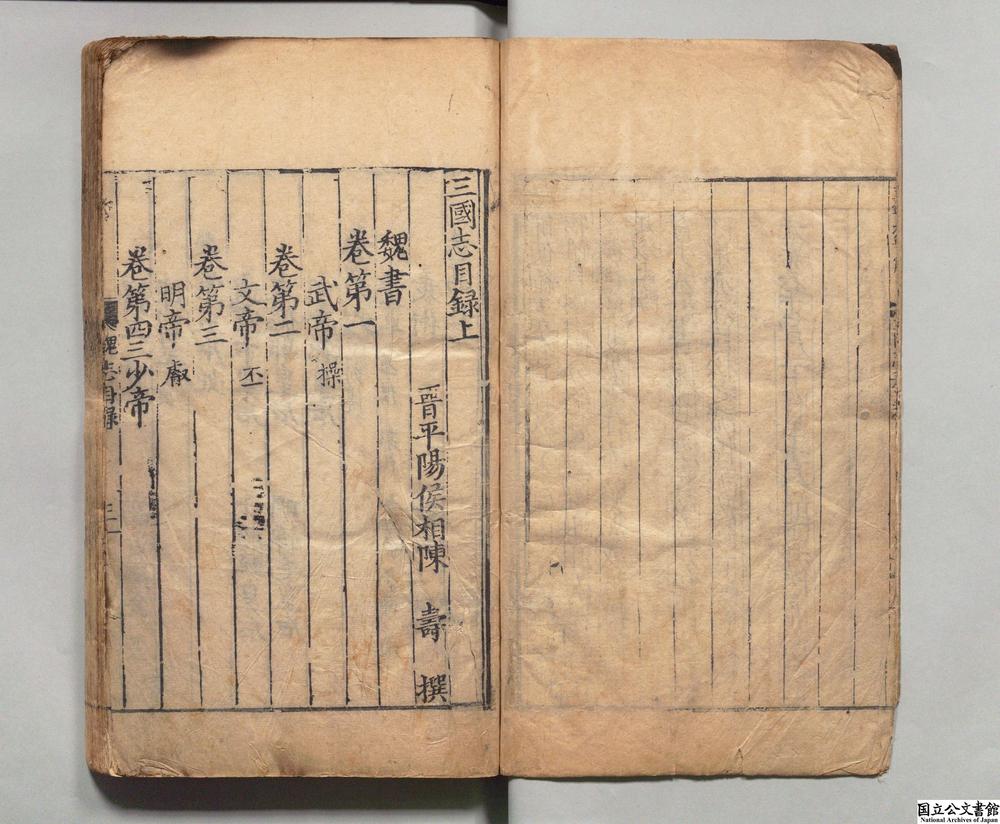 三國志目録上
晋平陽侯相陳 壽 撰
魏書
卷第一
武帝 操
卷第二
文帝 丕
卷第三
明帝 叡
卷第四三少帝
魏志目録
国立公文書館
National Archives of Japan